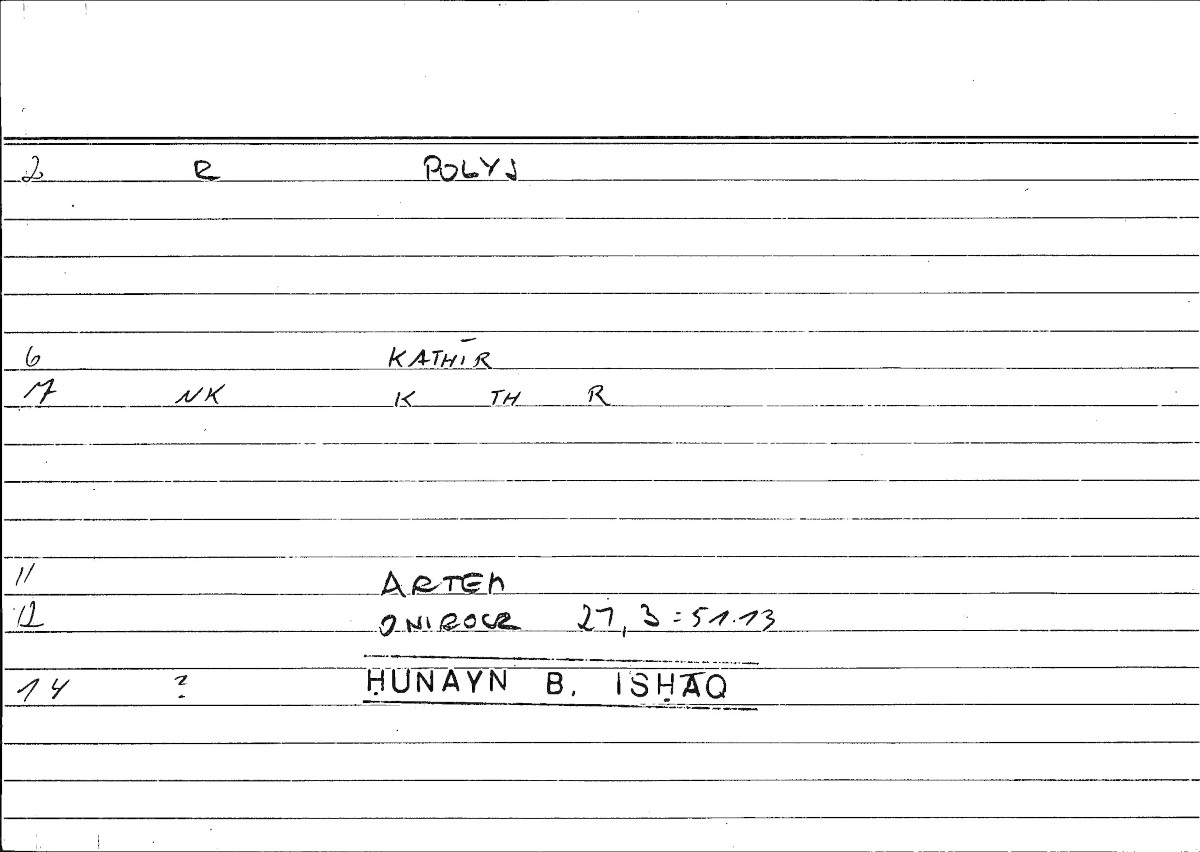 2 R POLYS
6 KATHĪR
7 NK K TH R
11 ARTEM
12 ONIROCR 27, 3 = 51.13
14 ? ḤUNAYN B. ISḤĀQ